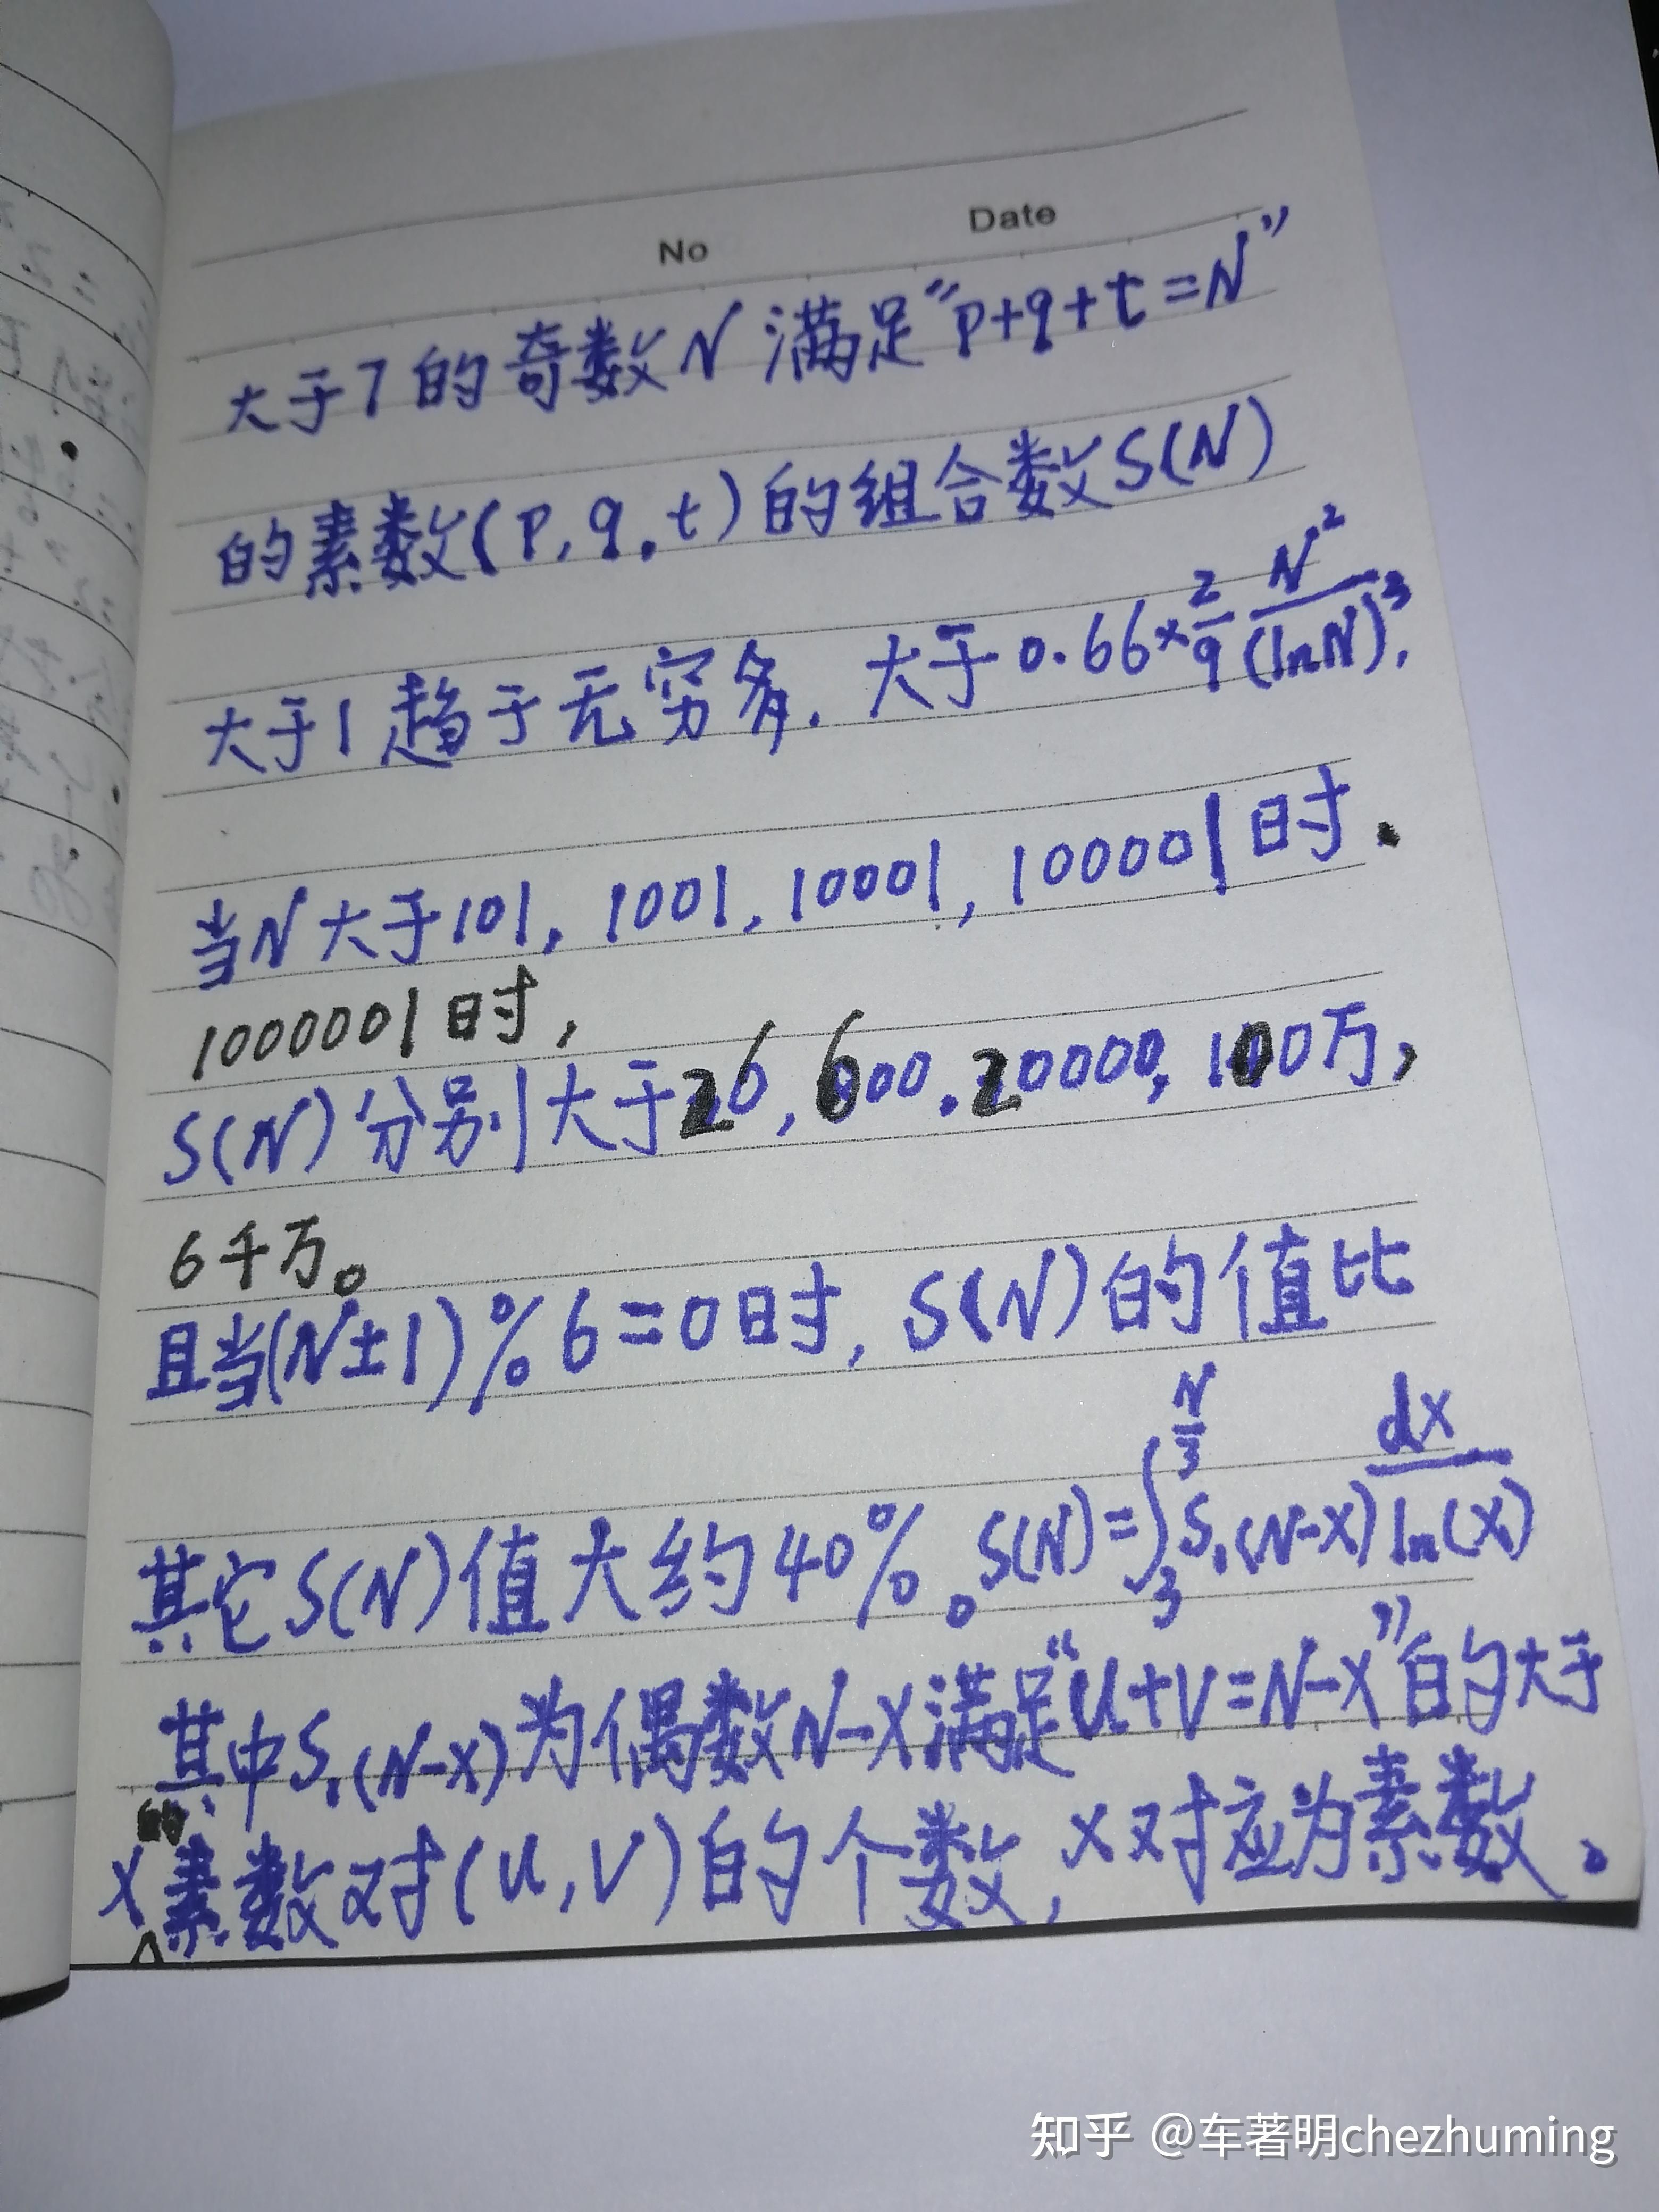 No Date
大于7的奇数N满足"p+q+t=N"
的素数(p,q,t)的组合数S(N)
大于1趋于无穷多,大于0.66×2/9 N²/(lnN)³,
当N大于101,1001,10001,100001时.
1000001时,
S(N)分别大于26,600.20000,100万,
6千万。
且当(N±1)%6=0时,S(N)的值比
其它S(N)值大约40%。S(N)=∫₃^(N/3) S₁(N-X) dx/ln(x)
其中S₁(N-X)为偶数N-X满足"u+v=N-X"的大于
X的素数对(u,v)的个数,x对应为素数。
知乎 @车著明chezhuming